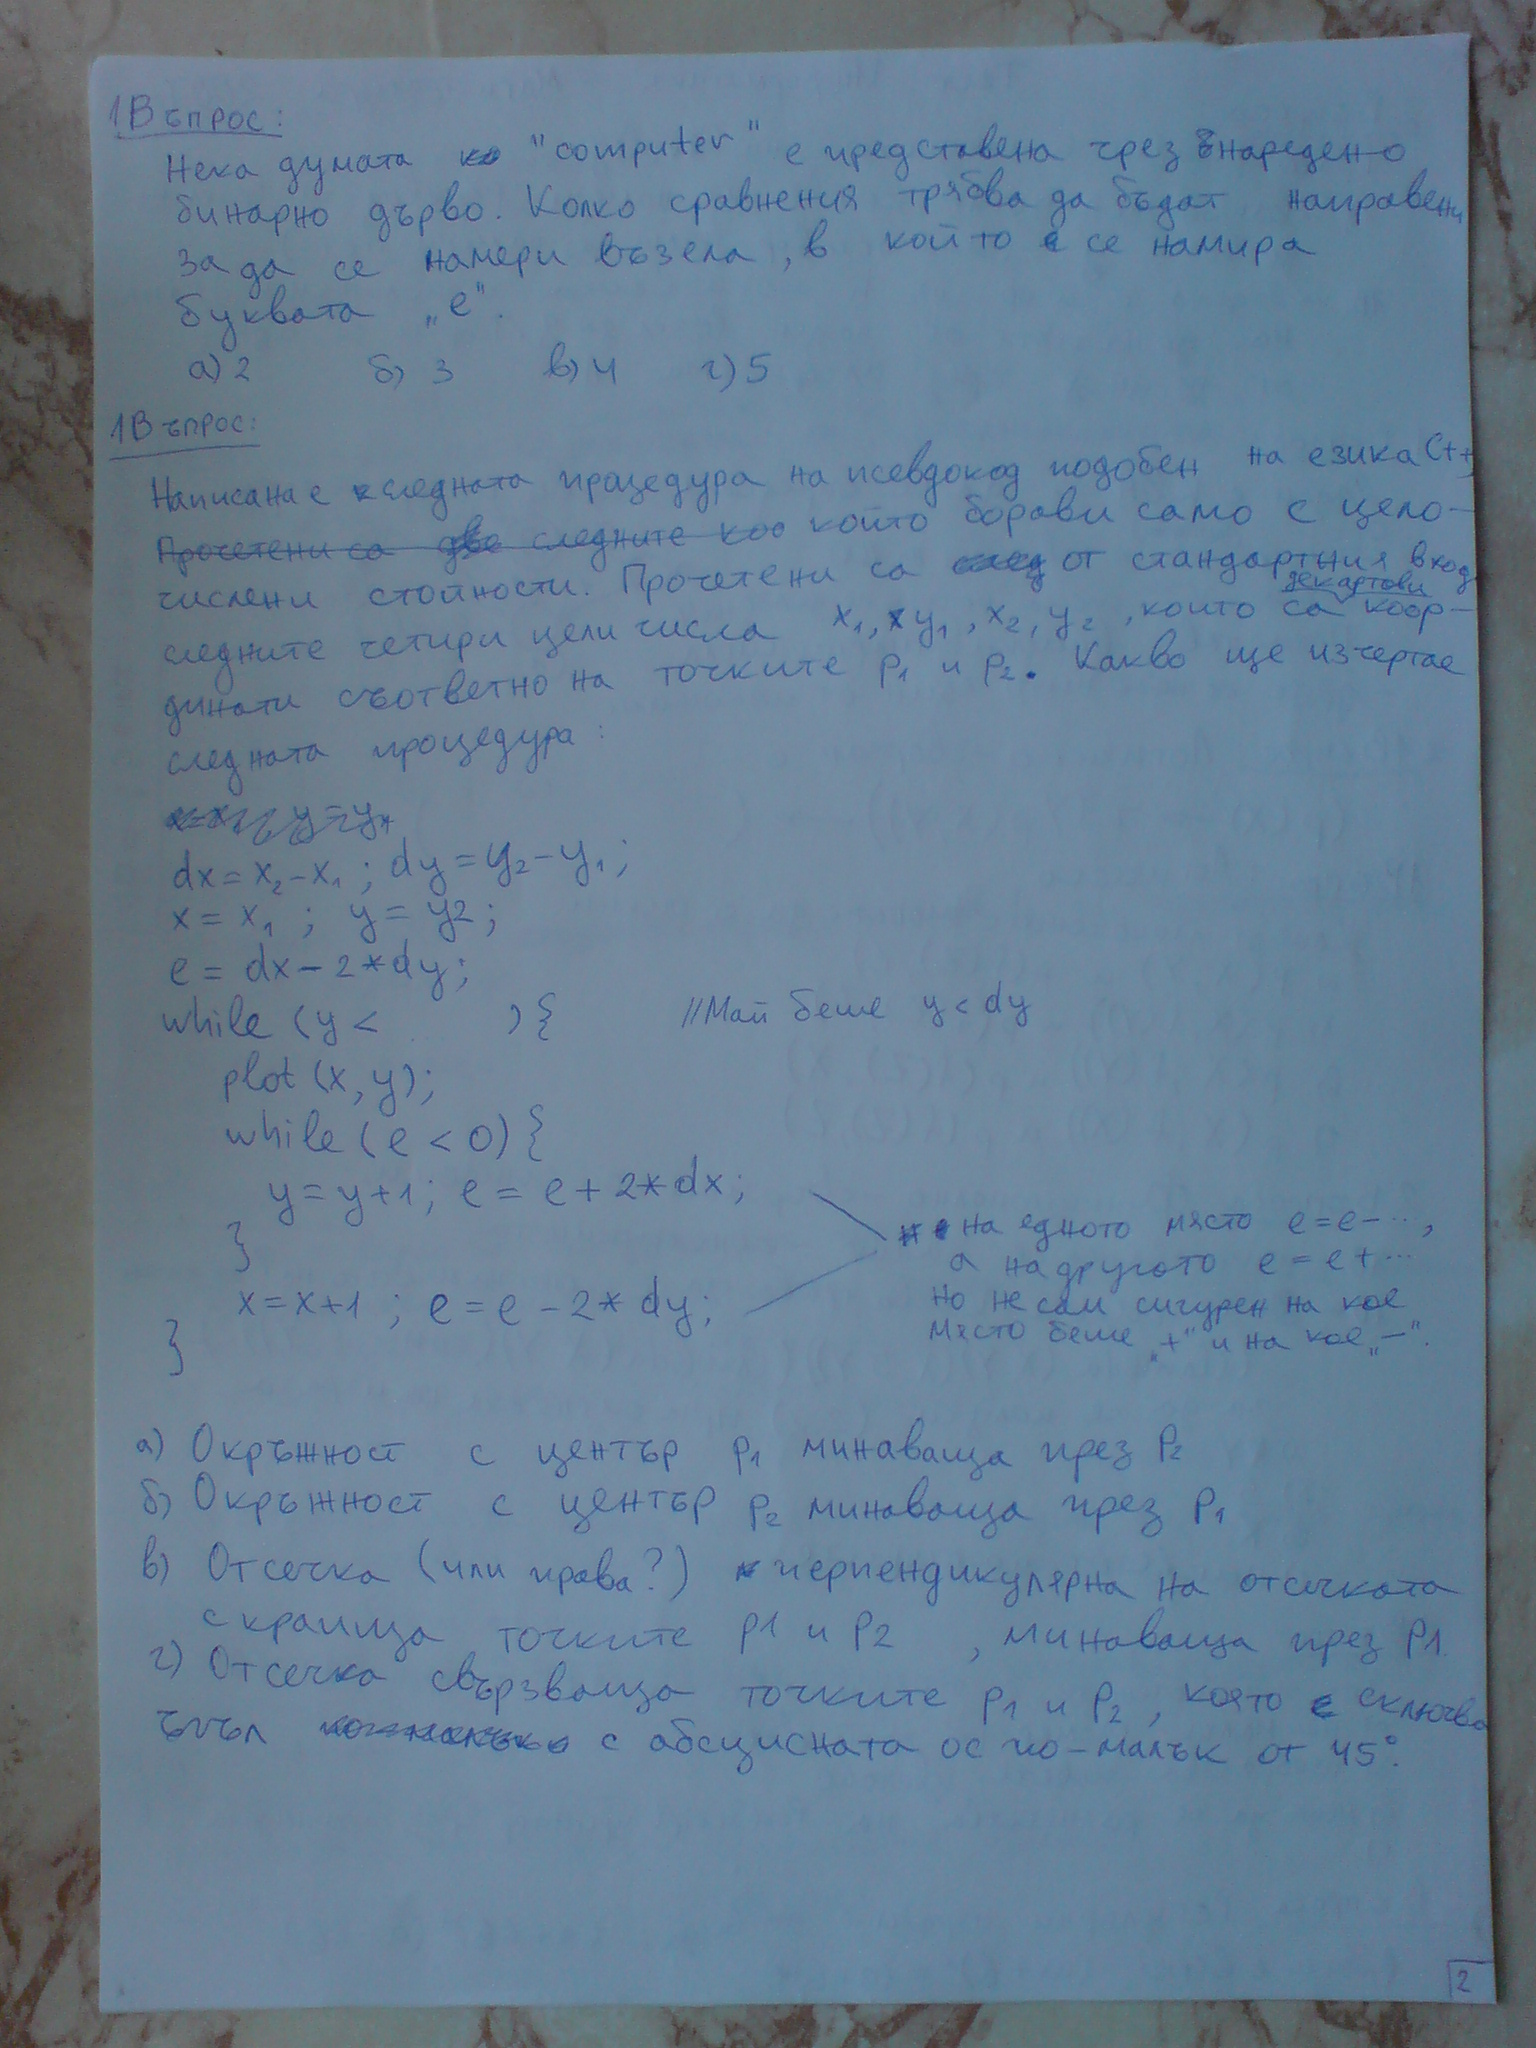 1Въпрос:
Нека думата "computer" е представена чрез наредено
бинарно дърво. Колко сравнения трябва да бъдат направени
за да се намери възела, в който се намира
буквата „е".
а) 2 б) 3 в) 4 г) 5
1Въпрос:
Написана е следната процедура на псевдокод подобен на езика C++
Прочетени са две следните който борави само с цело-
числени стойности. Прочетени са от стандартния вход
декартови
следните четири цели числа x1, y1, x2, y2, които са коор-
динати съответно на точките p1 и p2. Какво ще изчертае
следната процедура:
dx = x2 - x1 ; dy = y2 - y1 ;
x = x1 ; y = y2 ;
e = dx - 2 * dy ;
while (y < ) { //Май беше y < dy
plot (x, y);
while (e < 0) {
y = y + 1 ; e = e + 2 * dx ;
}
на едното място e = e - ...,
а на другото e = e + ...
x = x + 1 ; e = e - 2 * dy ;
но не съм сигурен на кое
място беше „+" и на кое „-".
}
а) Окръжност с център p1 минаваща през p2
б) Окръжност с център p2 минаваща през p1
в) Отсечка (или права?) перпендикулярна на отсечката
с краища точките p1 и p2 , минаваща през p1.
г) Отсечка свързваща точките p1 и p2, която сключва
ъгъл с абсцисната ос по-малък от 45°.
2